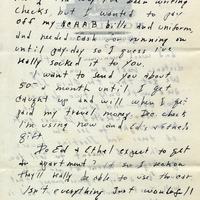 checks, but I wanted to pay
off my bills and uniform,
and needed cash for running on
until pay-day so I guess I've
really socked it to you.
I want to send you about
50- a month until I get
caught up and will when I get
paid my travel money. The check
I'm using now and Ed's & Ethel's
gift
Do Ed & Ethel expect to get
an apartment? if so I reckon
they'll really be able to use the car
Isn't everything just wonderful!